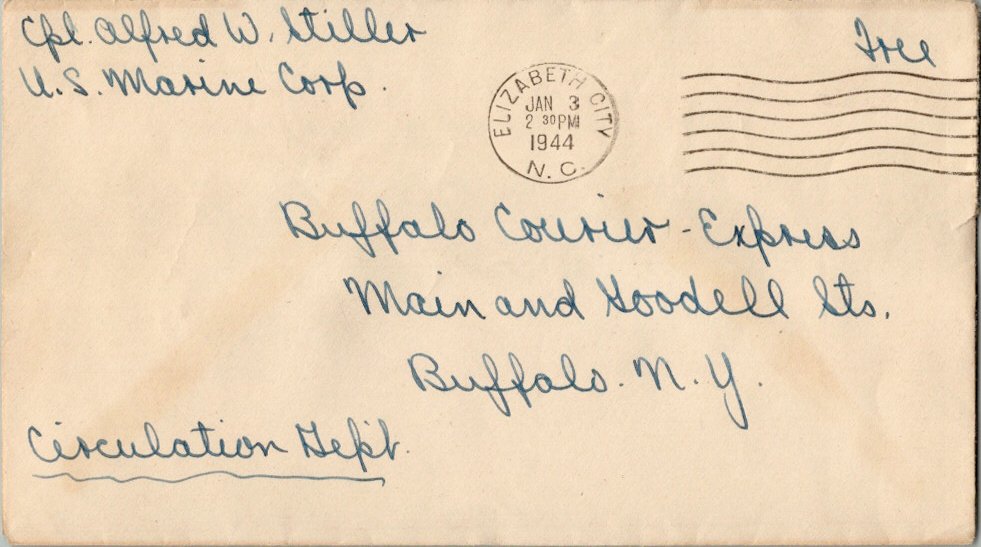 Cpl. Alfred W. Stiller
U.S. Marine Corp.
Free
ELIZABETH CITY
JAN 3
2 30 PM
1944
N. C.
Buffalo Courier-Express
Main and Goodell Sts.
Buffalo. N. Y.
Circulation Dept.